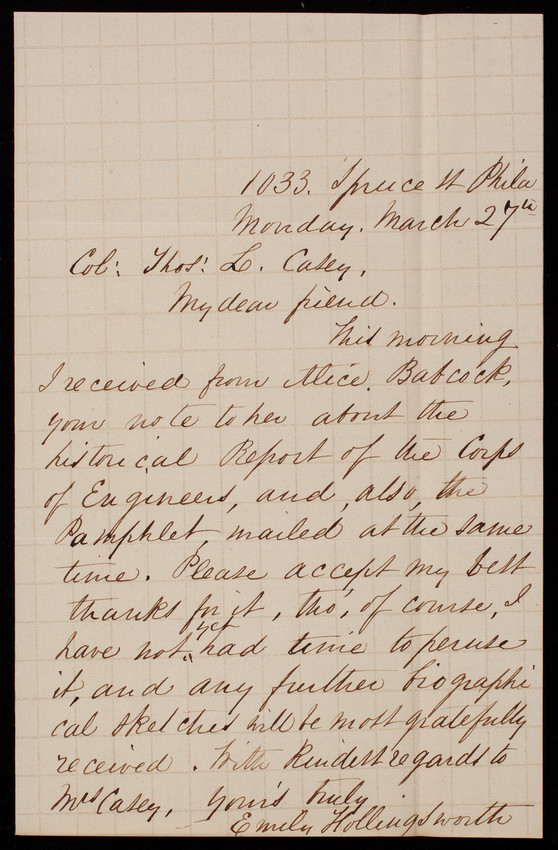 1033. Spruce St Phila
Monday. March 27th
Col: Thos: L. Casey,
My dear friend.
This morning
I received from Alice Babcock,
your note to her about the
historical Report of the Corps
of Engineers, and, also, the
Pamphlet, mailed at the same
time. Please accept my best
thanks for it, tho', of course, I
have not yet had time to peruse
it, and any further biographi
cal sketches will be most gratefully
received. With kindest regards to
Mrs Casey, your's truly
Emily Hollingsworth